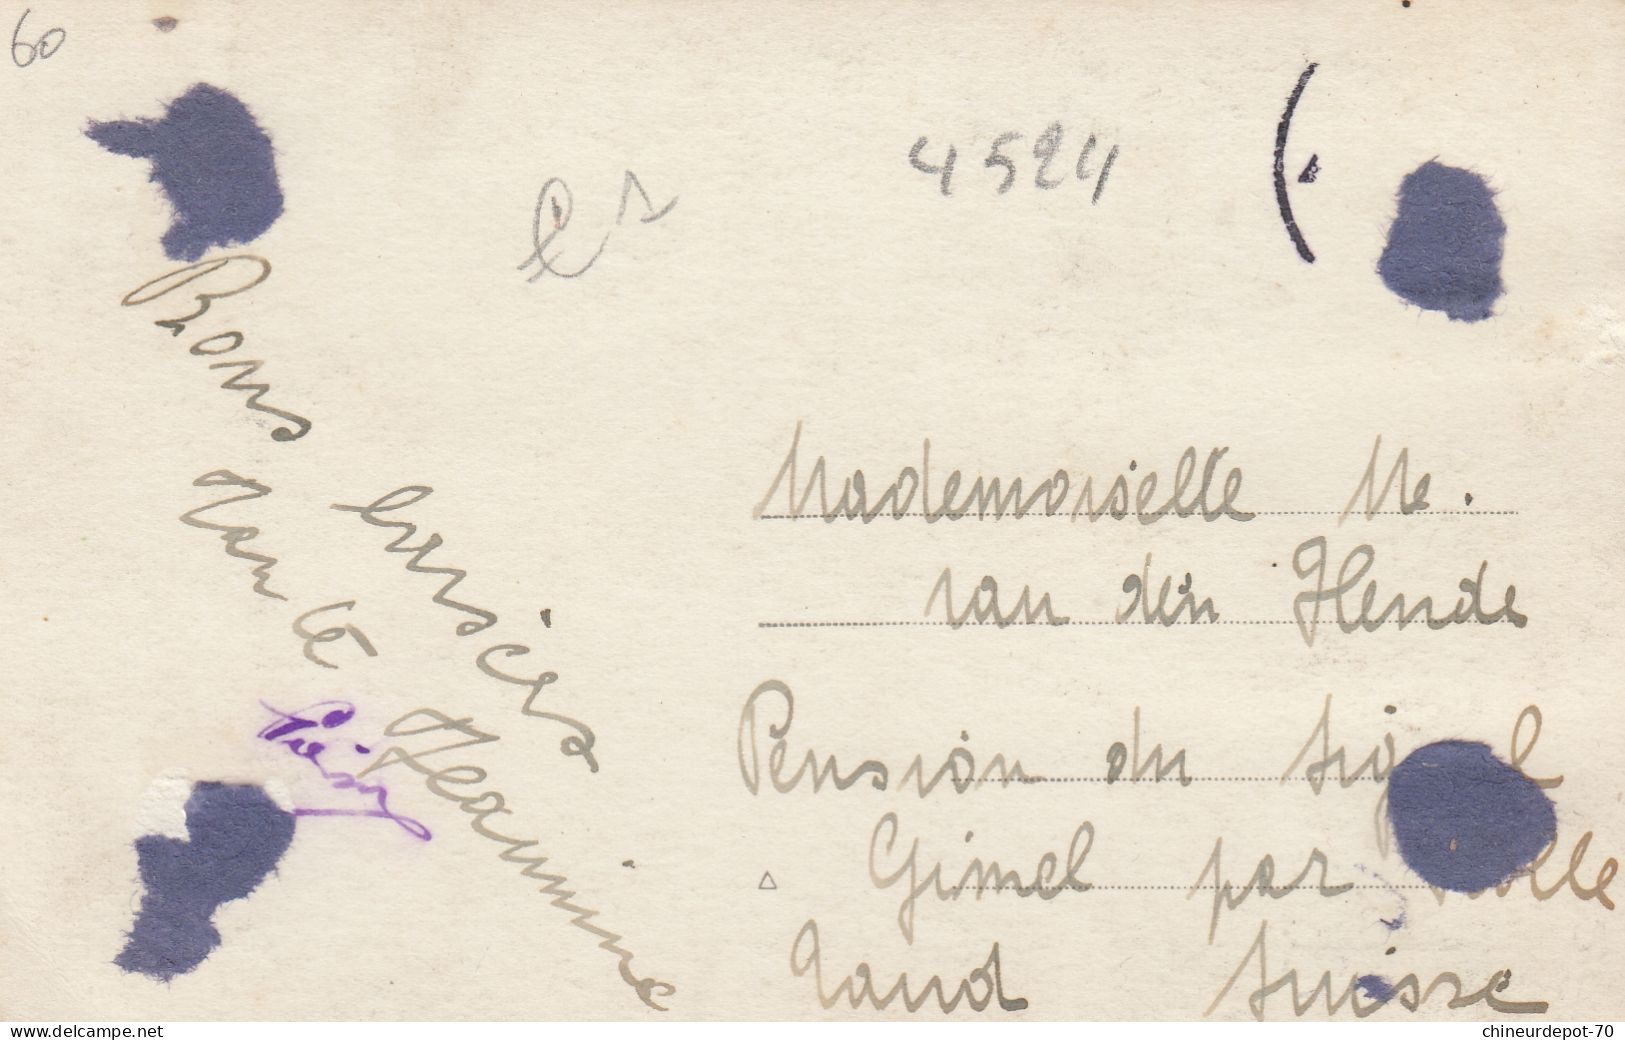 60
4524
Bons baisers
Tante
Jeannine
Mademoiselle M.
van den Hende
Pension du
Gimel par
Vaud Suisse
www.delcampe.net
chineurdepot-70